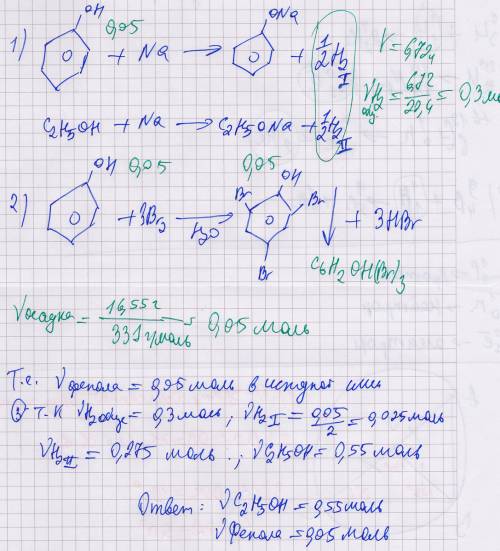 1) OH 0,05 + Na → ONa + 1/2 H2 I V = 6,72 л
νH2 общ = 6,72/22,4 = 0,3 мо
C2H5OH + Na → C2H5ONa + 1/2 H2 II
2) OH 0,05 + 3Br2 →H2O 0,05 OH Br Br Br ↓ + 3HBr
C6H2OH(Br)3
νосадка = 16,55 г / 331 г/моль = 0,05 моль
Т.е. νфенола = 0,05 моль в исходной смеси
3) т-к νH2 общ = 0,3 моль; νH2 I = 0,05/2 = 0,025 моль
νH2 II = 0,275 моль.; νC2H5OH = 0,55 моль
Ответ: νC2H5OH = 0,55 моль
νФенола = 0,05 моль